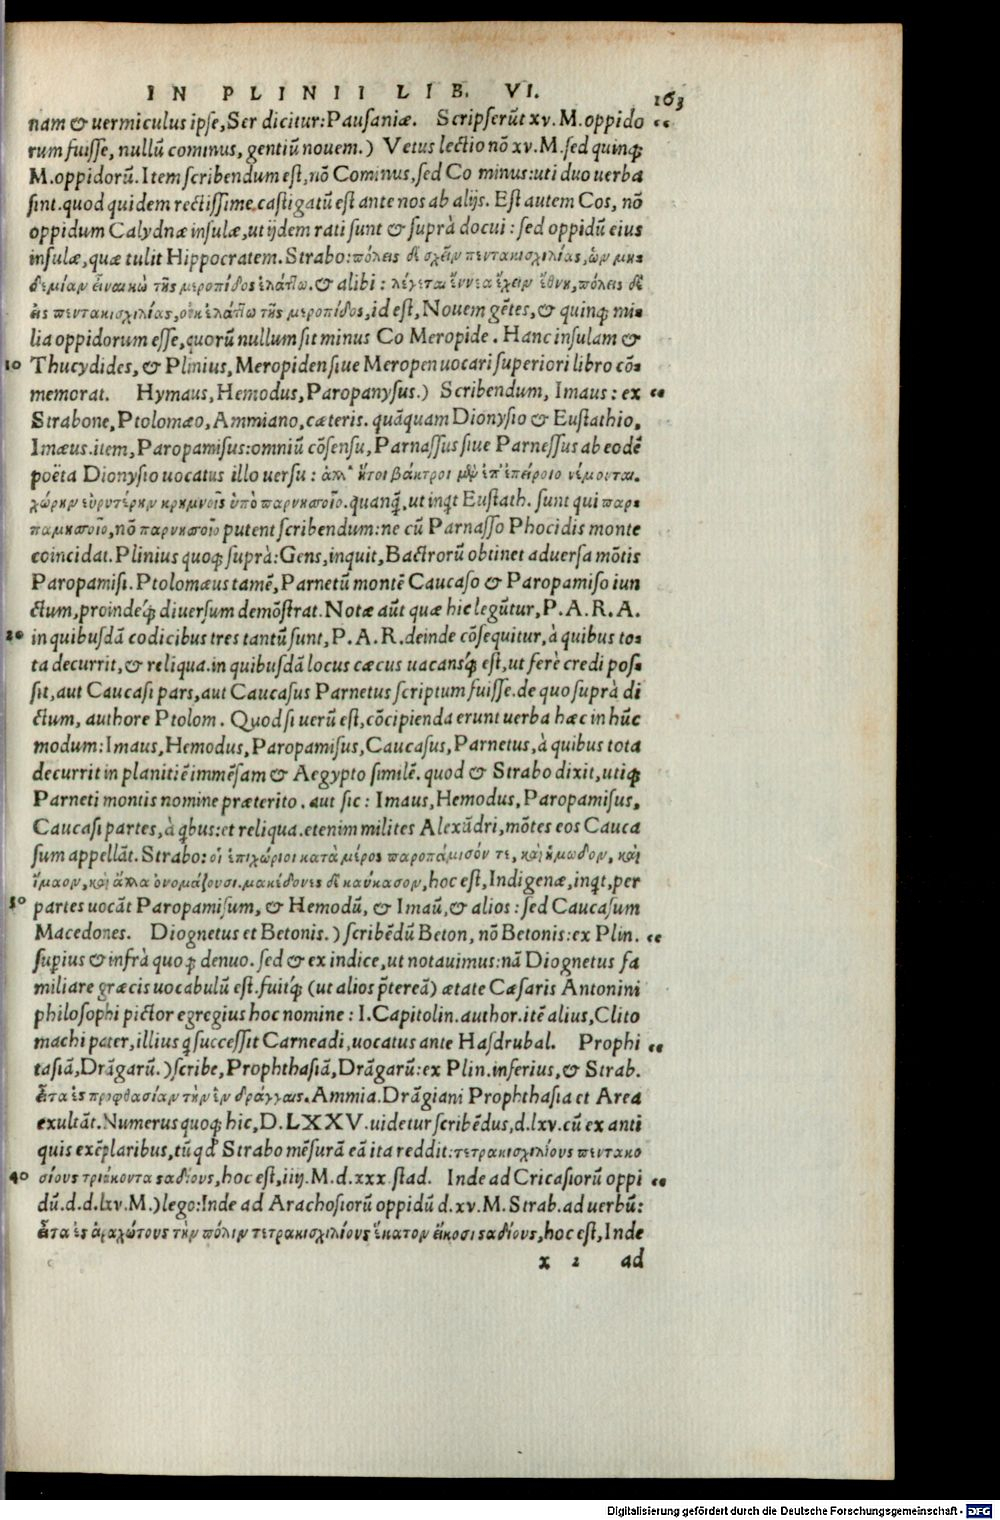 IN PLINII LIB. VI. 163
nam & uermiculus ipse, Ser dicitur: Pausaniæ. Scripserũt xv. M. oppido „
rum fuisse, nullũ cominus, gentiũ nouem.) Vetus lectio nõ xv. M. sed quinq;
M. oppidorũ. Item scribendum est, nõ Cominus, sed Co minus: uti duo uerba
sint. quod quidem rectissime castigatũ est ante nos ab alijs. Est autem Cos, nõ
oppidum Calydnæ insulæ, ut ijdem rati sunt & suprà docui: sed oppidũ eius
insulæ, quæ tulit Hippocratem. Strabo: πόλεις δὲ σχεῖν πεντακισχιλίας, ὧν μη-
δεμίαν εἶναι κῶ τῆς μεροπίδος ἐλάττω. & alibi: λέγεται ἔννεα ἔχειν ἔθνη, πόλεις δὲ
εἰς πεντακισχιλίας, οὐκ ἐλάττω τῆς μεροπίδος, id est, Nouem gẽtes, & quinq; mi-
lia oppidorum esse, quorũ nullum sit minus Co Meropide. Hanc insulam &
10 Thucydides, & Plinius, Meropiden siue Meropen uocari superiori libro cõ-
memorat. Hymaus, Hemodus, Paropanysus.) Scribendum, Imaus: ex „
Strabone, Ptolomæo, Ammiano, cæteris. quãquam Dionysio & Eustathio,
Imæus. item, Paropamisus: omniũ cõsensu, Parnassus siue Parnessus ab eodẽ
poëta Dionysio uocatus illo uersu: ἀλλ' ἤτοι βάκτροι μὲν ἐπ' ἠπείροιο νέμονται.
χώρην εὐρυτέρην κρημνοῖς ὑπὸ παρνησοῖο. quanq̃, ut inqt Eustath. sunt qui παρ-
παμησοῖο, nõ παρνησοῖο putent scribendum: ne cũ Parnasso Phocidis monte
coincidat. Plinius quoq; suprà: Gens, inquit, Bactrorũ obtinet aduersa mõtis
Paropamisi. Ptolomæus tamẽ, Parnetũ montẽ Caucaso & Paropamiso iun
ctum, proindeq́; diuersum demõstrat. Notæ aũt quæ hic legũtur, P. A. R. A.
20 in quibusdã codicibus tres tantũ sunt, P. A. R. deinde cõsequitur, à quibus to-
ta decurrit, & reliqua. in quibusdã locus cæcus uacansq́; est, ut ferè credi pos-
sit, aut Caucasi pars, aut Caucasus Parnetus scriptum fuisse. de quo suprà di
ctum, authore Ptolom. Quod si uerũ est, cõcipienda erunt uerba hæc in hũc
modum: Imaus, Hemodus, Paropamisus, Caucasus, Parnetus, à quibus tota
decurrit in planitiẽ immẽsam & Aegypto similẽ. quod & Strabo dixit, utiq;
Parneti montis nomine præterito. aut sic: Imaus, Hemodus, Paropamisus,
Caucasi partes, à qbus: et reliqua. etenim milites Alexãdri, mõtes eos Cauca
sum appellãt. Strabo: οἱ ἐπιχώριοι κατὰ μέρος παροπάμισόν τε, καὶ ἠμωδον, καὶ
ἴμαον, καὶ ἄλλα ὀνομάζουσι. μακεδόνες δὲ καύκασον, hoc est, Indigenæ, inqt, per
30 partes uocãt Paropamisum, & Hemodũ, & Imaũ, & alios: sed Caucasum
Macedones. Diognetus et Betonis.) scribẽdũ Beton, nõ Betonis: ex Plin. „
superius & infrà quoq; denuo. sed & ex indice, ut notauimus: nã Diognetus fa
miliare græcis uocabulũ est. fuitq́; (ut alios p̃tereã) ætate Cæsaris Antonini
philosophi pictor egregius hoc nomine: I. Capitolin. author. itẽ alius, Clito
machi pater, illius q successit Carneadi, uocatus ante Hasdrubal. Prophi „
tasiã, Drãgarũ.) scribe, Prophthasiã, Drãgarũ: ex Plin. inferius, & Strab.
εἶτα εἰς προφθασίαν τὴν ἐν δράγγαις. Ammia. Drãgiani Prophthasia et Area
exultãt. Numerus quoq; hic, D. LXXV. uidetur scribẽdus, d. lxv. cũ ex anti
quis exẽplaribus, tũ qd Strabo mẽsurã eã ita reddit: τετρακισχιλίους πεντακο
40 σίους τριάκοντα ϛαδίους, hoc est, iiij. M. d. xxx. stad. Inde ad Cricasiorũ oppi „
dũ. d. d. lxv. M.) lego: Inde ad Arachosiorũ oppidũ d. xv. M. Strab. ad uerbũ:
εἶτα εἰς ἀραχώτους τὴν πόλιν τετρακισχιλίους ἑκατὸν εἴκοσι ϛαδίους, hoc est, Inde
x 2 ad
Digitalisierung gefördert durch die Deutsche Forschungsgemeinschaft - DFG